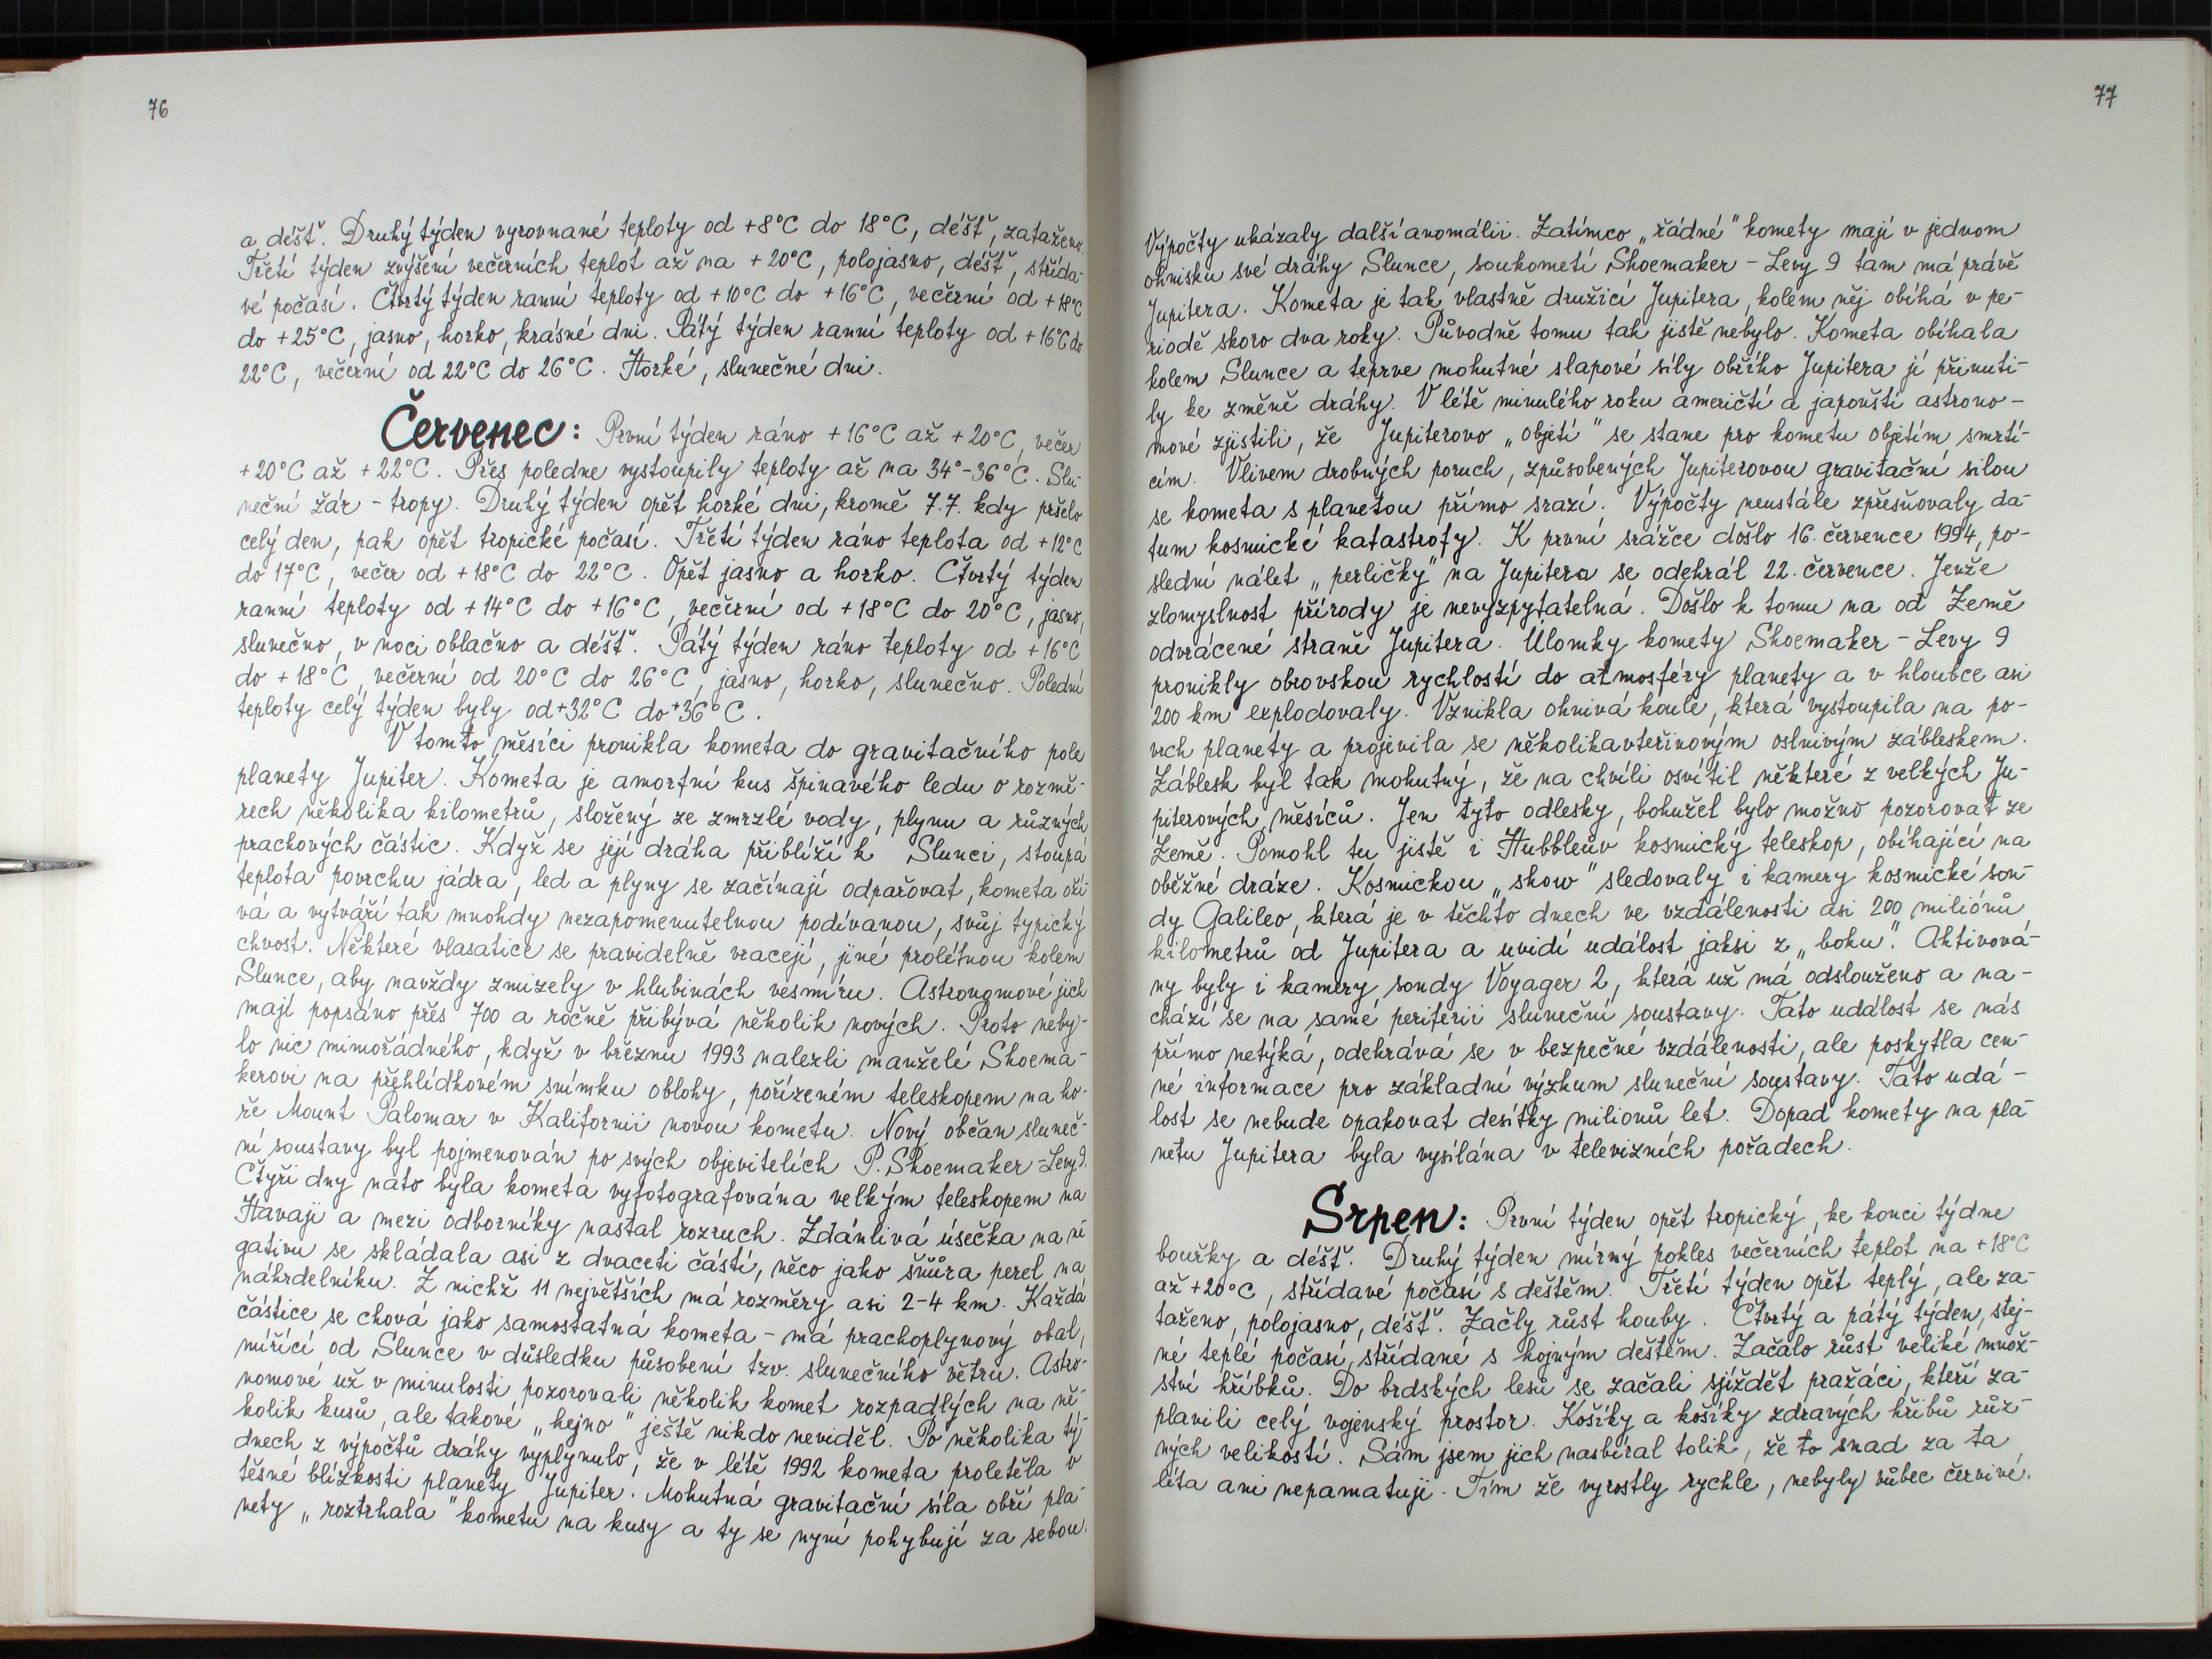 76
a déšť. Druhý týden vyrovnané teploty od +8°C do 18°C, déšť, zataženo.
Třetí týden zvýšení večerních teplot až na +20°C, polojasno, déšť, střída-
vé počasí. Čtvrtý týden ranní teploty od +10°C do +16°C, večerní od +18°C
do +25°C, jasno, horko, krásné dni. Pátý týden ranní teploty od +16°C do
22°C, večerní od 22°C do 26°C. Horké, slunečné dni.
Červenec: První týden ráno +16°C až +20°C, večer
+20°C až +22°C. Přes poledne vystoupily teploty až na 34°-36°C. Slu-
neční žár - tropy. Druhý týden opět horké dni, kromě 7.7. kdy pršelo
celý den, pak opět tropické počasí. Třetí týden ráno teplota od +12°C
do 17°C, večer od +18°C do 22°C. Opět jasno a horko. Čtvrtý týden
ranní teploty od +14°C do +16°C, večerní od +18°C do 20°C, jasno,
slunečno, v noci oblačno a déšť. Pátý týden ráno teploty od +16°C
do +18°C, večerní od 20°C do 26°C, jasno, horko, slunečno. Polední
teploty celý týden byly od +32°C do +36°C.
V tomto měsíci pronikla kometa do gravitačního pole
planety Jupiter. Kometa je amorfní kus špinavého ledu o rozmě-
rech několika kilometrů, složený ze zmrzlé vody, plynu a různých
prachových částic. Když se její dráha přiblíží k Slunci, stoupá
teplota povrchu jádra, led a plyny se začínají odpařovat, kometa oží-
vá a vytváří tak mnohdy nezapomenutelnou podívanou, svůj typický
chvost. Některé vlasatice se pravidelně vracejí, jiné prolétnou kolem
Slunce, aby navždy zmizely v hlubinách vesmíru. Astronomové jich
mají popsáno přes 700 a ročně přibývá několik nových. Proto neby-
lo nic mimořádného, když v březnu 1993 nalezli manželé Shoema-
kerovi na přehlídkovém snímku oblohy, pořízeném teleskopem na ho-
ře Mount Palomar v Kalifornii novou kometu. Nový občan sluneč-
ní soustavy byl pojmenován po svých objevitelích P. Shoemaker-Levy 9.
Čtyři dny nato byla kometa vyfotografována velkým teleskopem na
Havaji a mezi odborníky nastal rozruch. Zdánlivá úsečka na ne
gativu se skládala asi z dvaceti částí, něco jako šňůra perel na
náhrdelníku. Z nichž 11 největších má rozměry asi 2-4 km. Každá
částice se chová jako samostatná kometa - má prachoplynový obal,
mířící od Slunce v důsledku působení tzv. slunečního větru. Astro-
nomové už v minulosti pozorovali několik komet rozpadlých na ně-
kolik kusů, ale takové „hejno" ještě nikdo neviděl. Po několika tý-
dnech z výpočtů dráhy vyplynulo, že v létě 1992 kometa proletěla v
těsné blízkosti planety Jupiter. Mohutná gravitační síla obří pla-
nety „roztrhala" kometu na kusy a ty se nyní pohybují za sebou.
77
Výpočty ukázaly další anomálii. Zatímco „řádné" komety mají v jednom
ohnisku své dráhy Slunce, soukometí Shoemaker - Levy 9 tam má právě
Jupitera. Kometa je tak vlastně družicí Jupitera, kolem něj obíhá v pe-
riodě skoro dva roky. Původně tomu tak jistě nebylo. Kometa obíhala
kolem Slunce a teprve mohutné slapové síly obřího Jupitera jí přinuti-
ly ke změně dráhy. V létě minulého roku američtí a japonští astrono-
mové zjistili, že Jupiterovo „objetí" se stane pro kometu objetím smrtí-
cím. Vlivem drobných poruch, způsobených Jupiterovou gravitační silou
se kometa s planetou přímo srazí. Výpočty neustále zpřesňovaly da-
tum kosmické katastrofy. K první srážce došlo 16. července 1994, po-
slední nálet „perličky" na Jupitera se odehrál 22. července. Jenže
zlomyslnost přírody je nevyzpytatelná. Došlo k tomu na od Země
odvrácené straně Jupitera. Úlomky komety Shoemaker - Levy 9
pronikly obrovskou rychlostí do atmosféry planety a v hloubce asi
200 km explodovaly. Vznikla ohnivá koule, která vystoupila na po-
vrch planety a projevila se několikavteřinovým oslnivým zábleskem.
Záblesk byl tak mohutný, že na chvíli osvítil některé z velkých Ju-
piterových měsíců. Jen tyto odlesky, bohužel bylo možno pozorovat ze
Země. Pomohl tu jistě i Hubbleův kosmický teleskop, obíhající na
oběžné dráze. Kosmickou „show" sledovaly i kamery kosmické son-
dy Galileo, která je v těchto dnech ve vzdálenosti asi 200 miliónů
kilometrů od Jupitera a uvidí událost jaksi z „boku". Aktivová-
ny byly i kamery sondy Voyager 2, která už má odslouženo a na-
chází se na samé periférii sluneční soustavy. Tato událost se nás
přímo netýká, odehrává se v bezpečné vzdálenosti, ale poskytla cen-
né informace pro základní výzkum sluneční soustavy. Tato udá-
lost se nebude opakovat desítky milionů let. Dopad komety na pla-
netu Jupitera byla vysílána v televizních pořadech.
Srpen: První týden opět tropický, ke konci týdne
bouřky a déšť. Druhý týden mírný pokles večerních teplot na +18°C
až +20°C, střídavé počasí s deštěm. Třetí týden opět teplý, ale za-
taženo, polojasno, déšť. Začly růst houby. Čtvrtý a pátý týden, stej-
né teplé počasí, střídané s hojným deštěm. Začalo růst veliké množ-
ství hříbků. Do brdských lesů se začali sjíždět pražáci, kteří za-
plavili celý vojenský prostor. Košíky a košíky zdravých hřibů růz-
ných velikostí. Sám jsem jich nasbíral tolik, že to snad za ta
léta ani nepamatuji. Tím že vyrostly rychle, nebyly vůbec červivé.